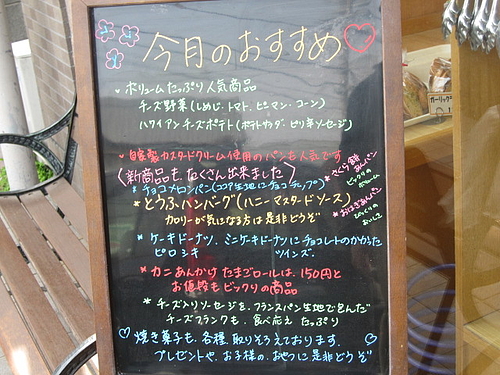 今月のおすすめ
ボリュームたっぷり人気商品
チーズ野菜(しめじ・トマト、ピーマン・コーン)
ハワイアンチーズポテト(ポテトサラダ・ピリ辛ソーセージ)
自家製カスタードクリーム使用のパンも人気です
新商品も、たくさん出来ました
*チョコメロンパン(ココア生地にチョコチップ)
*とうふハンバーグ(ハニーマスタードソース)
カロリーが気になる方は是非どうぞ
*さくら餅あんパン
ビックリのボリューム
*おはぎあんパン
びっくりのおいしさ
*ケーキドーナツ、ミニケーキドーナツにチョコレートのかかった
ピロシキ ツインズ。
*カニあんかけたまごロールは、150円と
お値段もビックリの商品
*チーズ入りソーセージを、フランスパン生地で包んだ
チーズフランクも、食べ応えたっぷり
焼き菓子も、各種、取りそろえております。
プレゼントや、お子様の、おやつに是非どうぞ
ガーリック